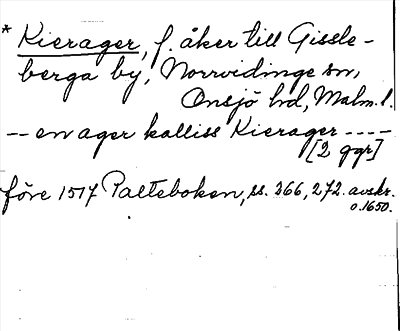 * Kierager, f. åker till Gissle-
berga by, Norrvidinge sn,
Onsjö hd, Malm. l.
-- en ager kalliss Kierager ----
[2 ggr]
före 1517 Palteboken, ss. 366, 272. avskr.
o. 1650.